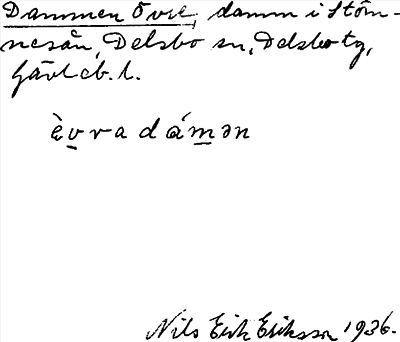 Dammen Övre, damm i Stöm-
nesån, Delsbo sn, Delsbo tg,
Gävleb. l.
èv̱ra dám̱ən
Nils Erik Eriksson 1936.